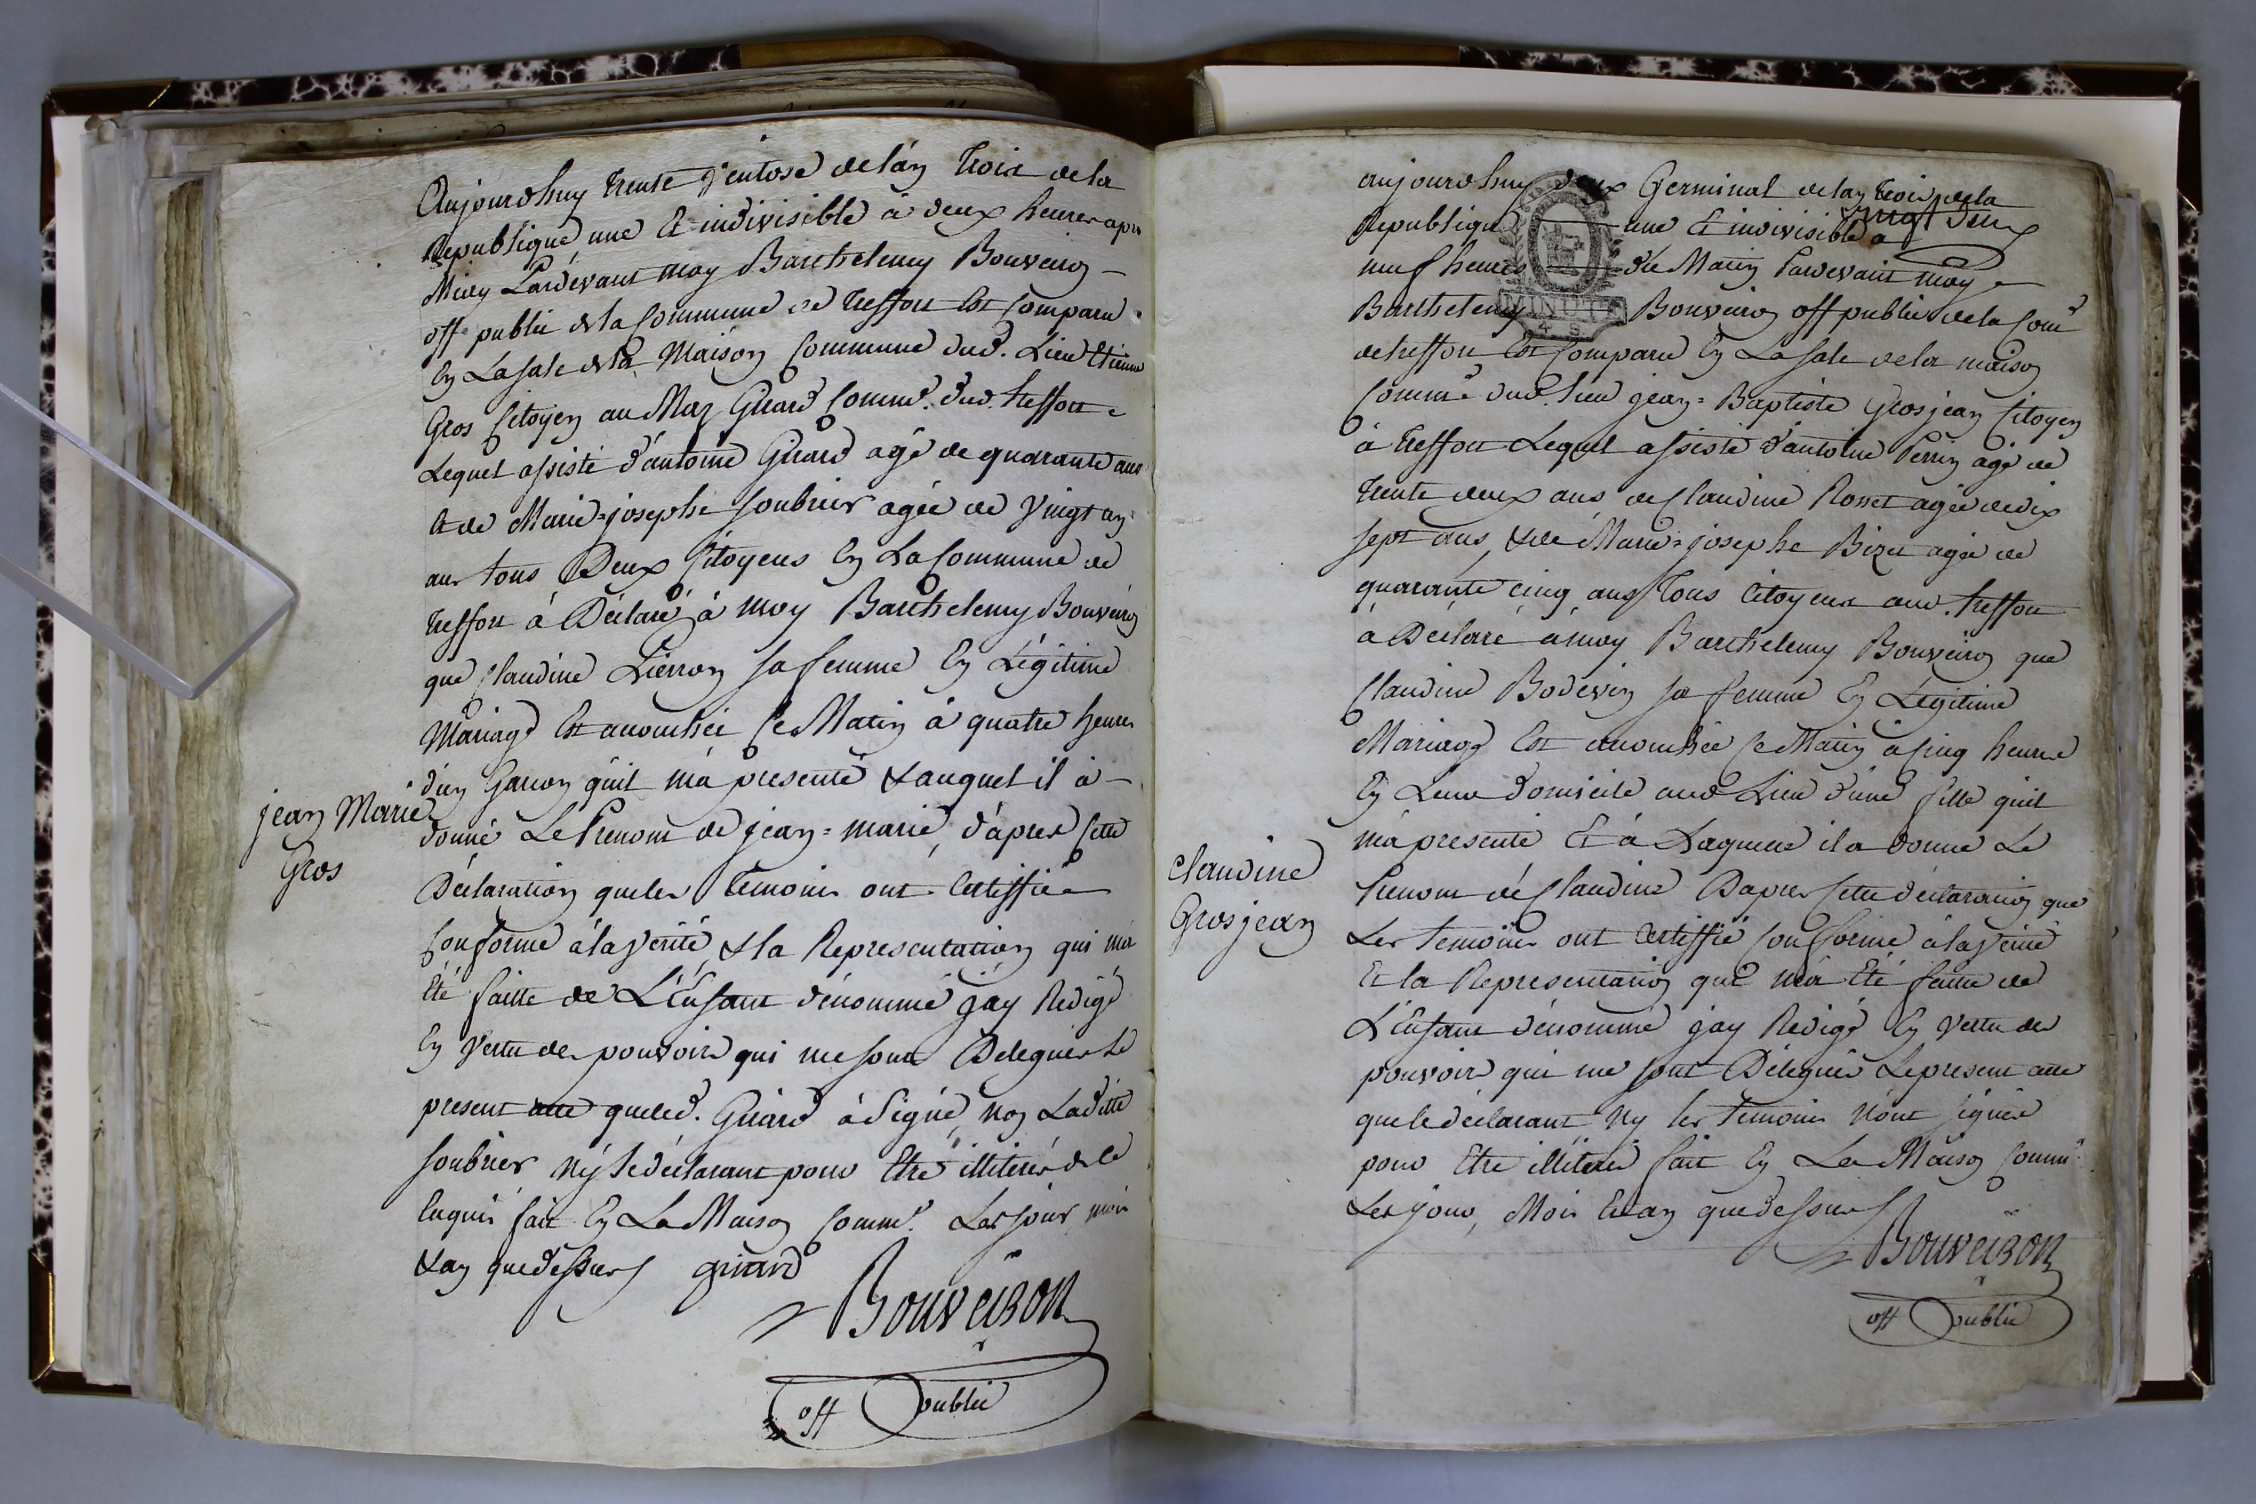 Aujourdhuy trente Ventose de lan trois de la
Republique une Et indivisible à deux heures apres
Midy Pardevant moy Barthelemy Bouveiron
off public de la Commune de treffort Est Comparu
En La sale de la Maison Commune dud. Lieu Etienne
Gros Citoyen au Maz Girard Comm.e dud. treffort
Lequel assisté d'antoine Girard agé de quarante ans
Et de Marie-josephe soubrier agée de Vingt un
ans tous Deux Citoyens En La Commune de
treffort à Déclaré à moy Barthelemy Bouveiron
que Claudine Pierron sa femme En Légitime
Mariage Est acouchée Ce Matin à quatre heures
d'un Garcon qu'il m'a presenté & auquel il à
donné Le Prenom de jean-marie, d'apres Cette
Déclaration que les temoins ont Certiffié
Conforme à la verité, & la Representation qui m'a
Eté faitte de L'Enfant dénommé jay Redigé
En Vertu des pouvoirs qui me sont Delegués Le
present acte que led. Girard à Signé, non Laditte
soubrier ny le déclarant pour Etre illiterés de ce
Enquis fait En La Maison Comm.e Les jour mois
& an que dessus girard
Bouveiron
off public
jean Marie
Gros
aujourdhuy deux Germinal de lan trois de la
Republique une Et indivisible à
neuf heures du Matin Pardevant moy
Barthelemy Bouveiron off public de la Com.e
de treffort Est Comparu En La Sale de la maison
Comm.e dud. Lieu jean-Baptiste Grosjean Citoyen
à treffort Lequel assisté d'antoine Perrin agé de
trente deux ans de Claudine Rosset agée de dix
sept ans, & de Marie-josephe Bizet agée de
quarante cinq ans Tous Citoyens aud. treffort
à Déclaré à moy Barthelemy Bouveiron que
Claudine Bodevin sa femme En Legitime
Mariage Est acouchée Ce Matin à Cinq heures
En Leur domicile aud Lieu d'une fille quil
m'a presenté Et à Laquelle il a donné Le
Prenom de Claudine Dapres Cette déclaration que
Les temoins ont Certiffié Conforme à la Verité
Et la Representation qui m'a Eté faitte de
L'Enfant dénommé jay Redigé En Vertu des
pouvoirs qui me sont Délegués Le present acte
que le déclarant ny les temoins n'ont Signés
pour Etre illiterés fait En La Maison Comm.e
Les jour, Mois Et an que dessus
Bouveiron
off public
claudine
Grosjean
MINUTE